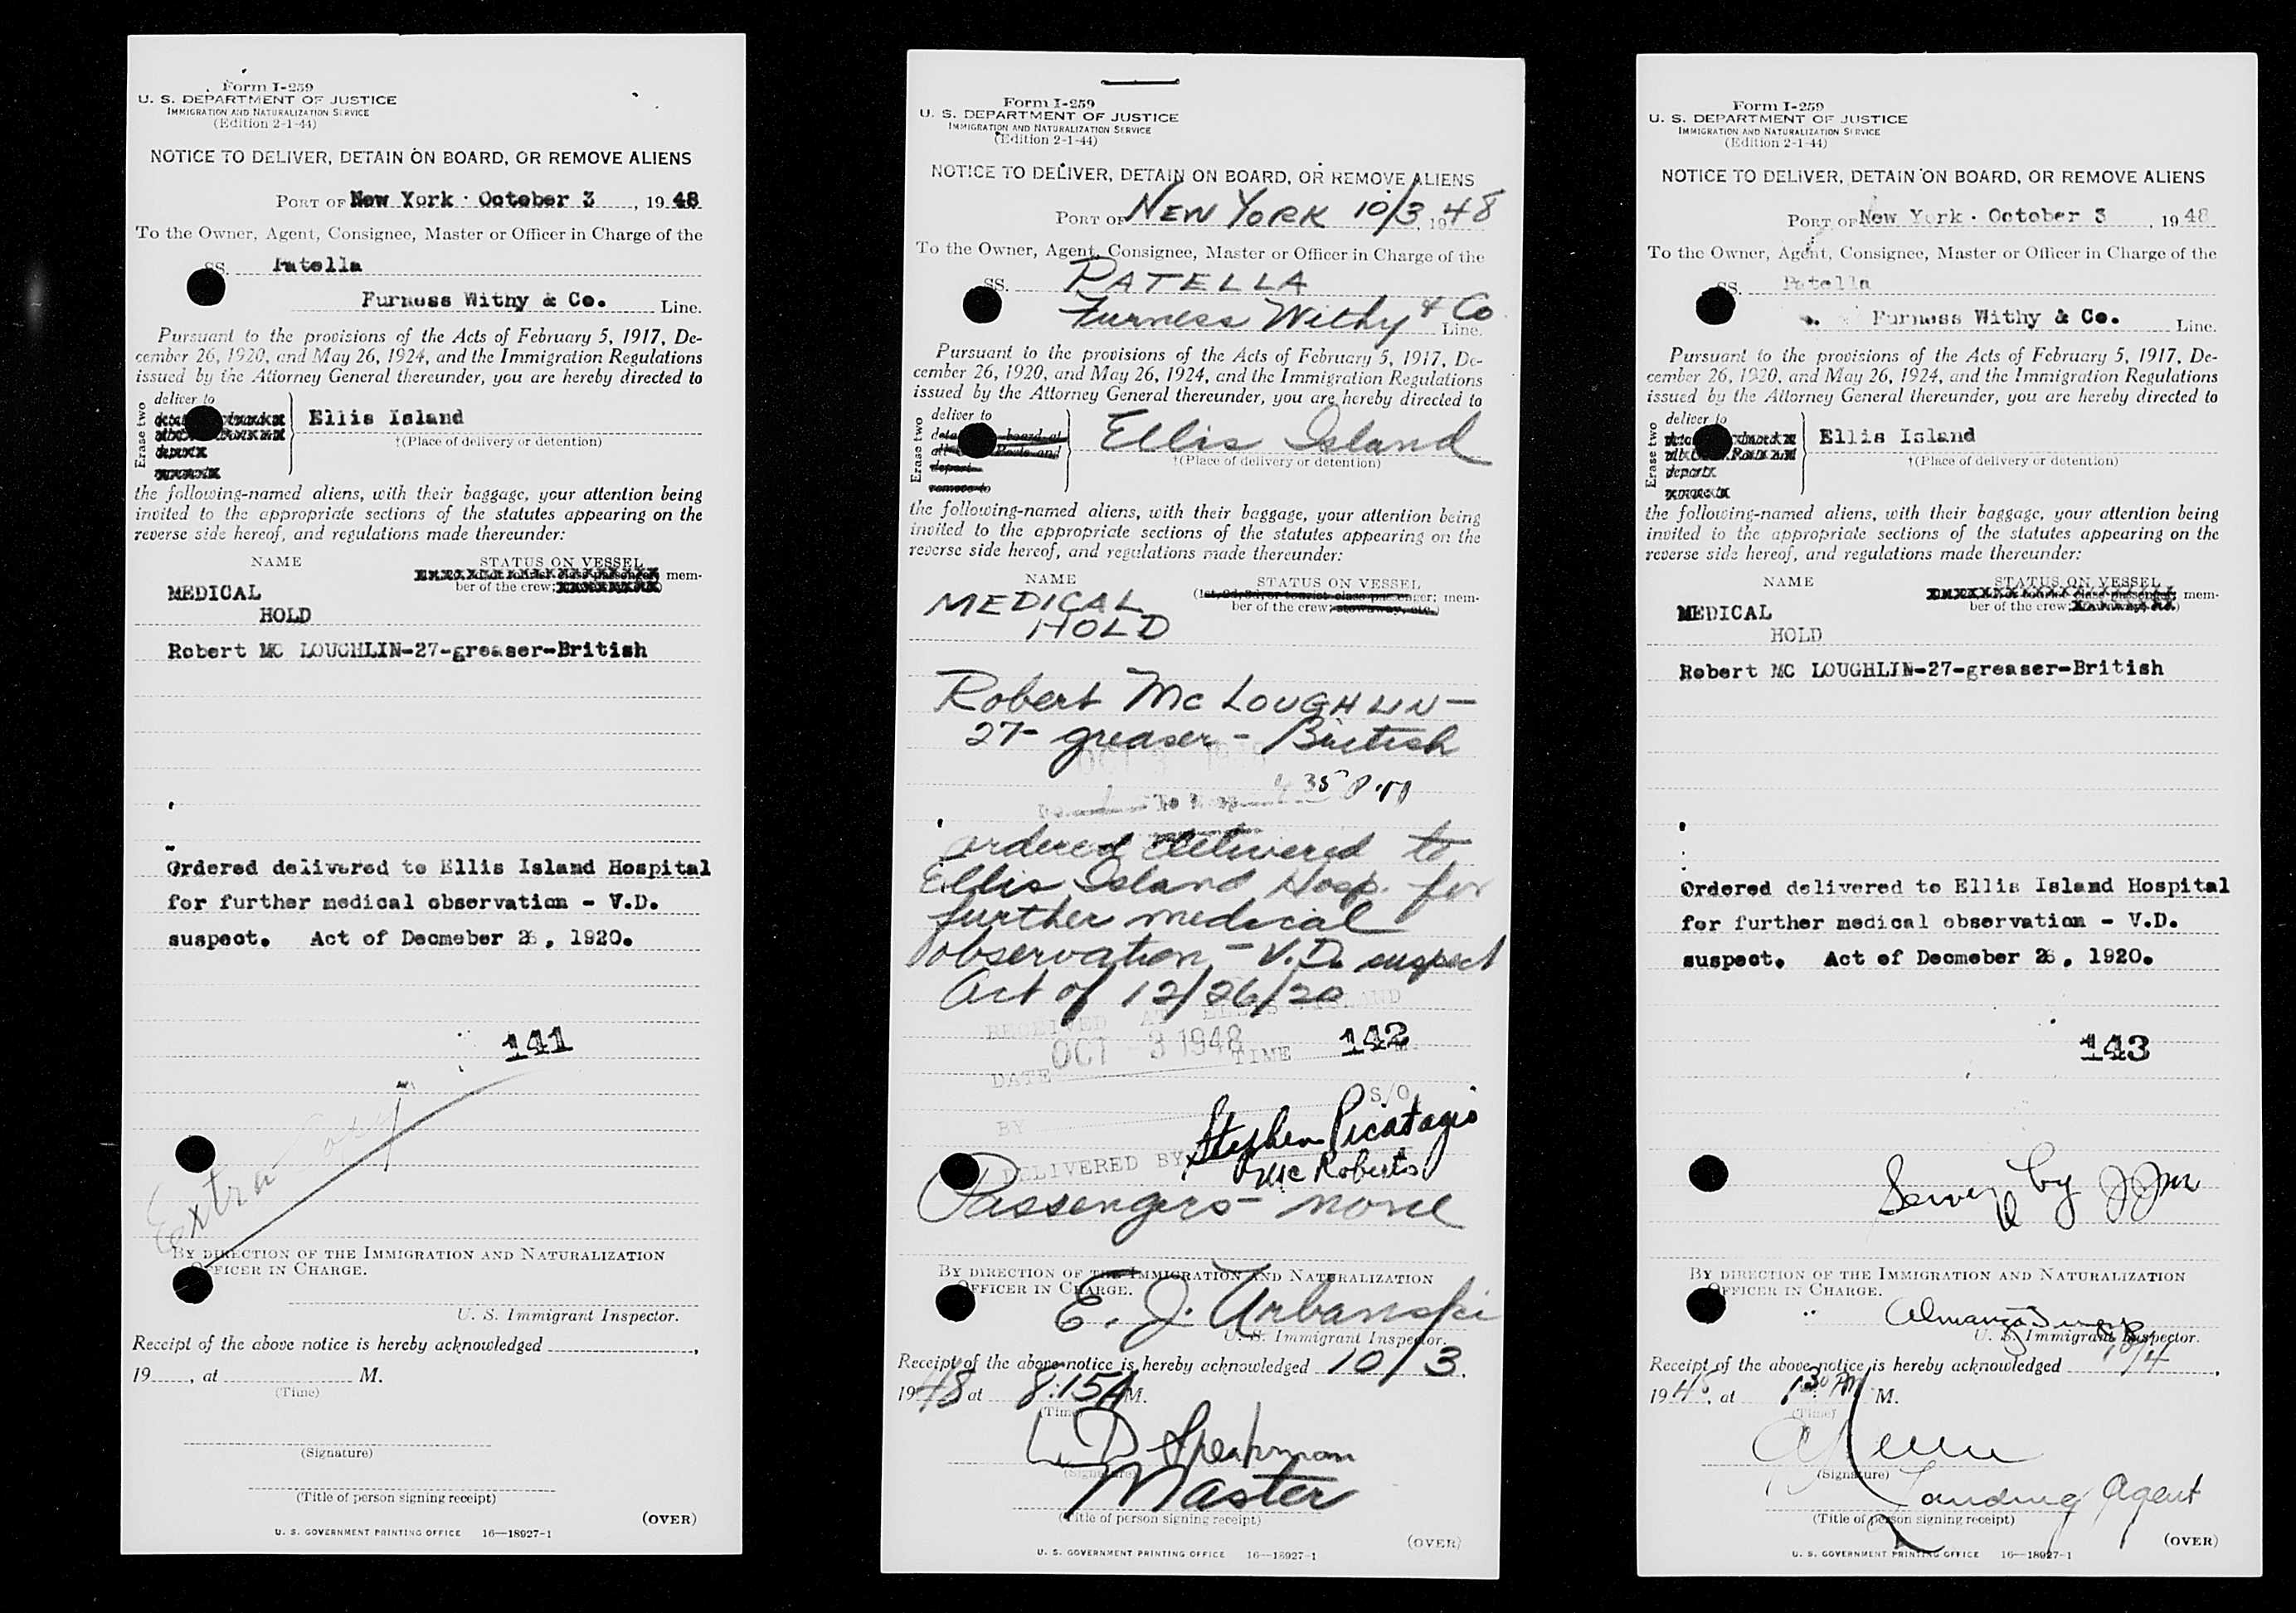 Form I-259
U. S. DEPARTMENT OF JUSTICE
IMMIGRATION AND NATURALIZATION SERVICE
(Edition 2-1-44)
NOTICE TO DELIVER, DETAIN ON BOARD, OR REMOVE ALIENS
PORT OF New York October 3, 1948
To the Owner, Agent, Consignee, Master or Officer in Charge of the
SS. Patella
Furness Withy & Co. Line.
Pursuant to the provisions of the Acts of February 5, 1917, De-
cember 26, 1920, and May 26, 1924, and the Immigration Regulations
issued by the Attorney General thereunder, you are hereby directed to
Erase two
deliver to
Ellis Island
†(Place of delivery or detention)
the following-named aliens, with their baggage, your attention being
invited to the appropriate sections of the statutes appearing on the
reverse side hereof, and regulations made thereunder:
NAME STATUS ON VESSEL
mem-
ber of the crew;
MEDICAL
HOLD
Robert MC LOUGHLIN-27-greaser-British
Ordered delivered to Ellis Island Hospital
for further medical observation - V.D.
suspect. Act of Decmeber 26, 1920.
141
Extra Copy
BY DIRECTION OF THE IMMIGRATION AND NATURALIZATION
OFFICER IN CHARGE.
U. S. Immigrant Inspector.
Receipt of the above notice is hereby acknowledged ,
19 , at M.
(Time)
(Signature)
(Title of person signing receipt)
(OVER)
U. S. GOVERNMENT PRINTING OFFICE 16—18927-1
Form I-259
U. S. DEPARTMENT OF JUSTICE
IMMIGRATION AND NATURALIZATION SERVICE
(Edition 2-1-44)
NOTICE TO DELIVER, DETAIN ON BOARD, OR REMOVE ALIENS
PORT OF NEW YORK 10/3, 1948
To the Owner, Agent, Consignee, Master or Officer in Charge of the
SS. PATELLA
Furness Withy & Co
Line.
Pursuant to the provisions of the Acts of February 5, 1917, De-
cember 26, 1920, and May 26, 1924, and the Immigration Regulations
issued by the Attorney General thereunder, you are hereby directed to
Erase two
deliver to
board at
Ports and
depart
remove to
Ellis Island
†(Place of delivery or detention)
the following-named aliens, with their baggage, your attention being
invited to the appropriate sections of the statutes appearing on the
reverse side hereof, and regulations made thereunder:
NAME STATUS ON VESSEL
(1st, 2d, 3d, or tourist class passenger; mem-
ber of the crew; stowaway, etc.)
MEDICAL
HOLD
Robert Mc LOUGHLIN -
27- greaser - British
OCT 3 1948
35 P.M
ordered delivered to
Ellis Island Hosp. for
further medical
observation - V.D. suspect
Act of 12/26/20
RECEIVED AT ELLIS ISLAND
DATE OCT 3 1948 TIME M.
142
S/O
BY
DELIVERED BY Stephen Picatagio
Mc Roberts
Passengers - none
BY DIRECTION OF THE IMMIGRATION AND NATURALIZATION
OFFICER IN CHARGE.
E. J. Urbanski
U. S. Immigrant Inspector.
Receipt of the above notice is hereby acknowledged 10/3,
1948 at 8:15A M.
(Time)
Spearman
(Signature)
Master
(Title of person signing receipt)
(OVER)
U. S. GOVERNMENT PRINTING OFFICE 16—18927-1
Form I-259
U. S. DEPARTMENT OF JUSTICE
IMMIGRATION AND NATURALIZATION SERVICE
(Edition 2-1-44)
NOTICE TO DELIVER, DETAIN ON BOARD, OR REMOVE ALIENS
PORT OF New York October 3, 1948
To the Owner, Agent, Consignee, Master or Officer in Charge of the
SS. Patella
Furness Withy & Co. Line.
Pursuant to the provisions of the Acts of February 5, 1917, De-
cember 26, 1920, and May 26, 1924, and the Immigration Regulations
issued by the Attorney General thereunder, you are hereby directed to
Erase two
deliver to
depart
Ellis Island
†(Place of delivery or detention)
the following-named aliens, with their baggage, your attention being
invited to the appropriate sections of the statutes appearing on the
reverse side hereof, and regulations made thereunder:
NAME STATUS ON VESSEL
mem-
ber of the crew;
MEDICAL
HOLD
Robert MC LOUGHLIN-27-greaser-British
Ordered delivered to Ellis Island Hospital
for further medical observation - V.D.
suspect. Act of Decmeber 26, 1920.
143
by JJM
BY DIRECTION OF THE IMMIGRATION AND NATURALIZATION
OFFICER IN CHARGE.
U. S. Immigrant Inspector.
Receipt of the above notice is hereby acknowledged 10/4,
1948, at 1 30 PM M.
(Time)
(Signature)
Landing Agent
(Title of person signing receipt)
(OVER)
U. S. GOVERNMENT PRINTING OFFICE 16—18927-1